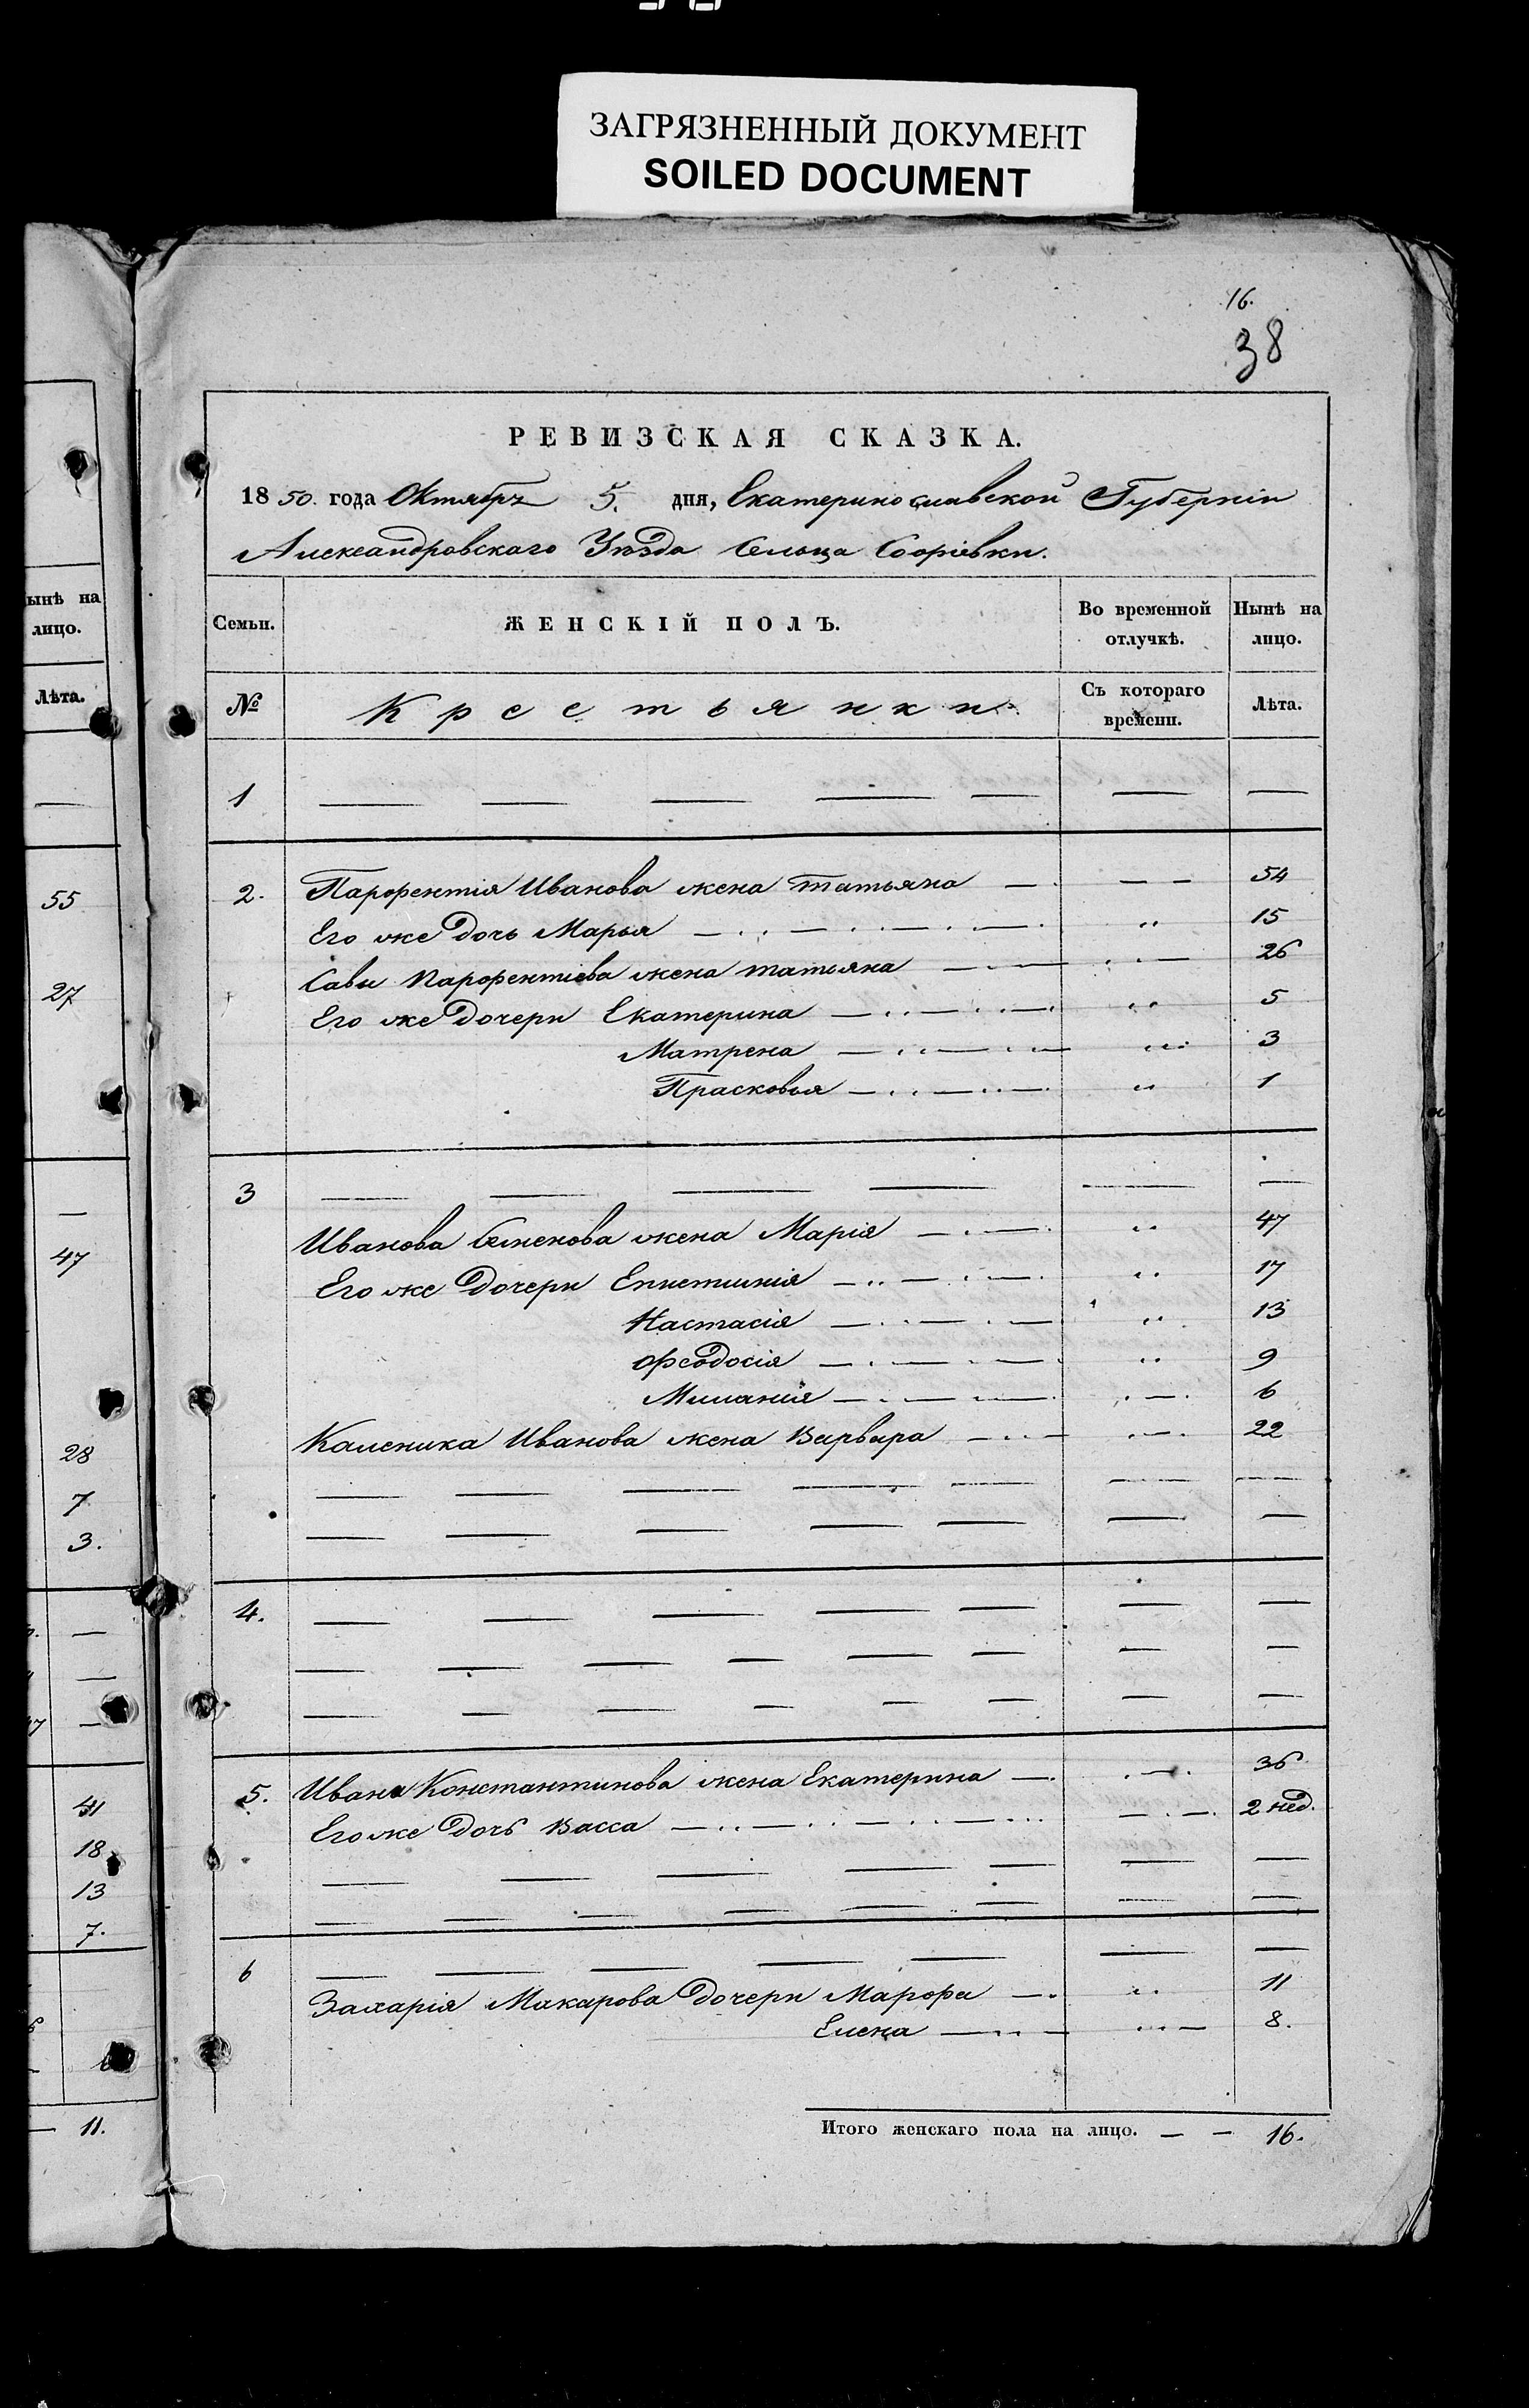 ЗАГРЯЗНЕННЫЙ ДОКУМЕНТ
SOILED DOCUMENT
16.
38
РЕВИЗСКАЯ СКАЗКА.
1850. года Октября 5. дня, Екатеринославской Губерніи
Александровскаго Уѣзда Сельца Софіевки.
Семьи. ЖЕНСКІЙ ПОЛЪ. Во временной отлучкѣ. Нынѣ на лицо.
№ Крестьянки. Съ котораго времени. Лѣта.
1 — — — — — — —
2. Парфентія Иванова жена Татьяна — — — 54
Его же дочь Марья — 15
Савы Парфентіева жена татьяна — 26
Его же дочери Екатерина — 5
Матрена — 3
Прасковья — 1
3 — — — — — —
Иванова Семенова жена Марія — 47
Его же дочери Епистимія — 17
Настасія — 13
Ѳеодосія — 9
Миланія — 6
Каленика Иванова жена Варвара — 22
— — — — — — —
— — — — — — —
4. — — — — — — —
— — — — — — — —
— — — — — — — —
5. Ивана Константинова жена Екатерина — 36
Его же дочь Васса — 2 нед.
— — — — — — —
— — — — — — — —
6 — — — — — — —
Захарія Макарова дочери Марфа — 11
Елена — 8.
Итого женскаго пола на лицо. — — 16.
ынѣ на
лицо.
Лѣта.
—
55
27
—
47
28
7
3.
—
—
—
41
18
13
7.
— 11.